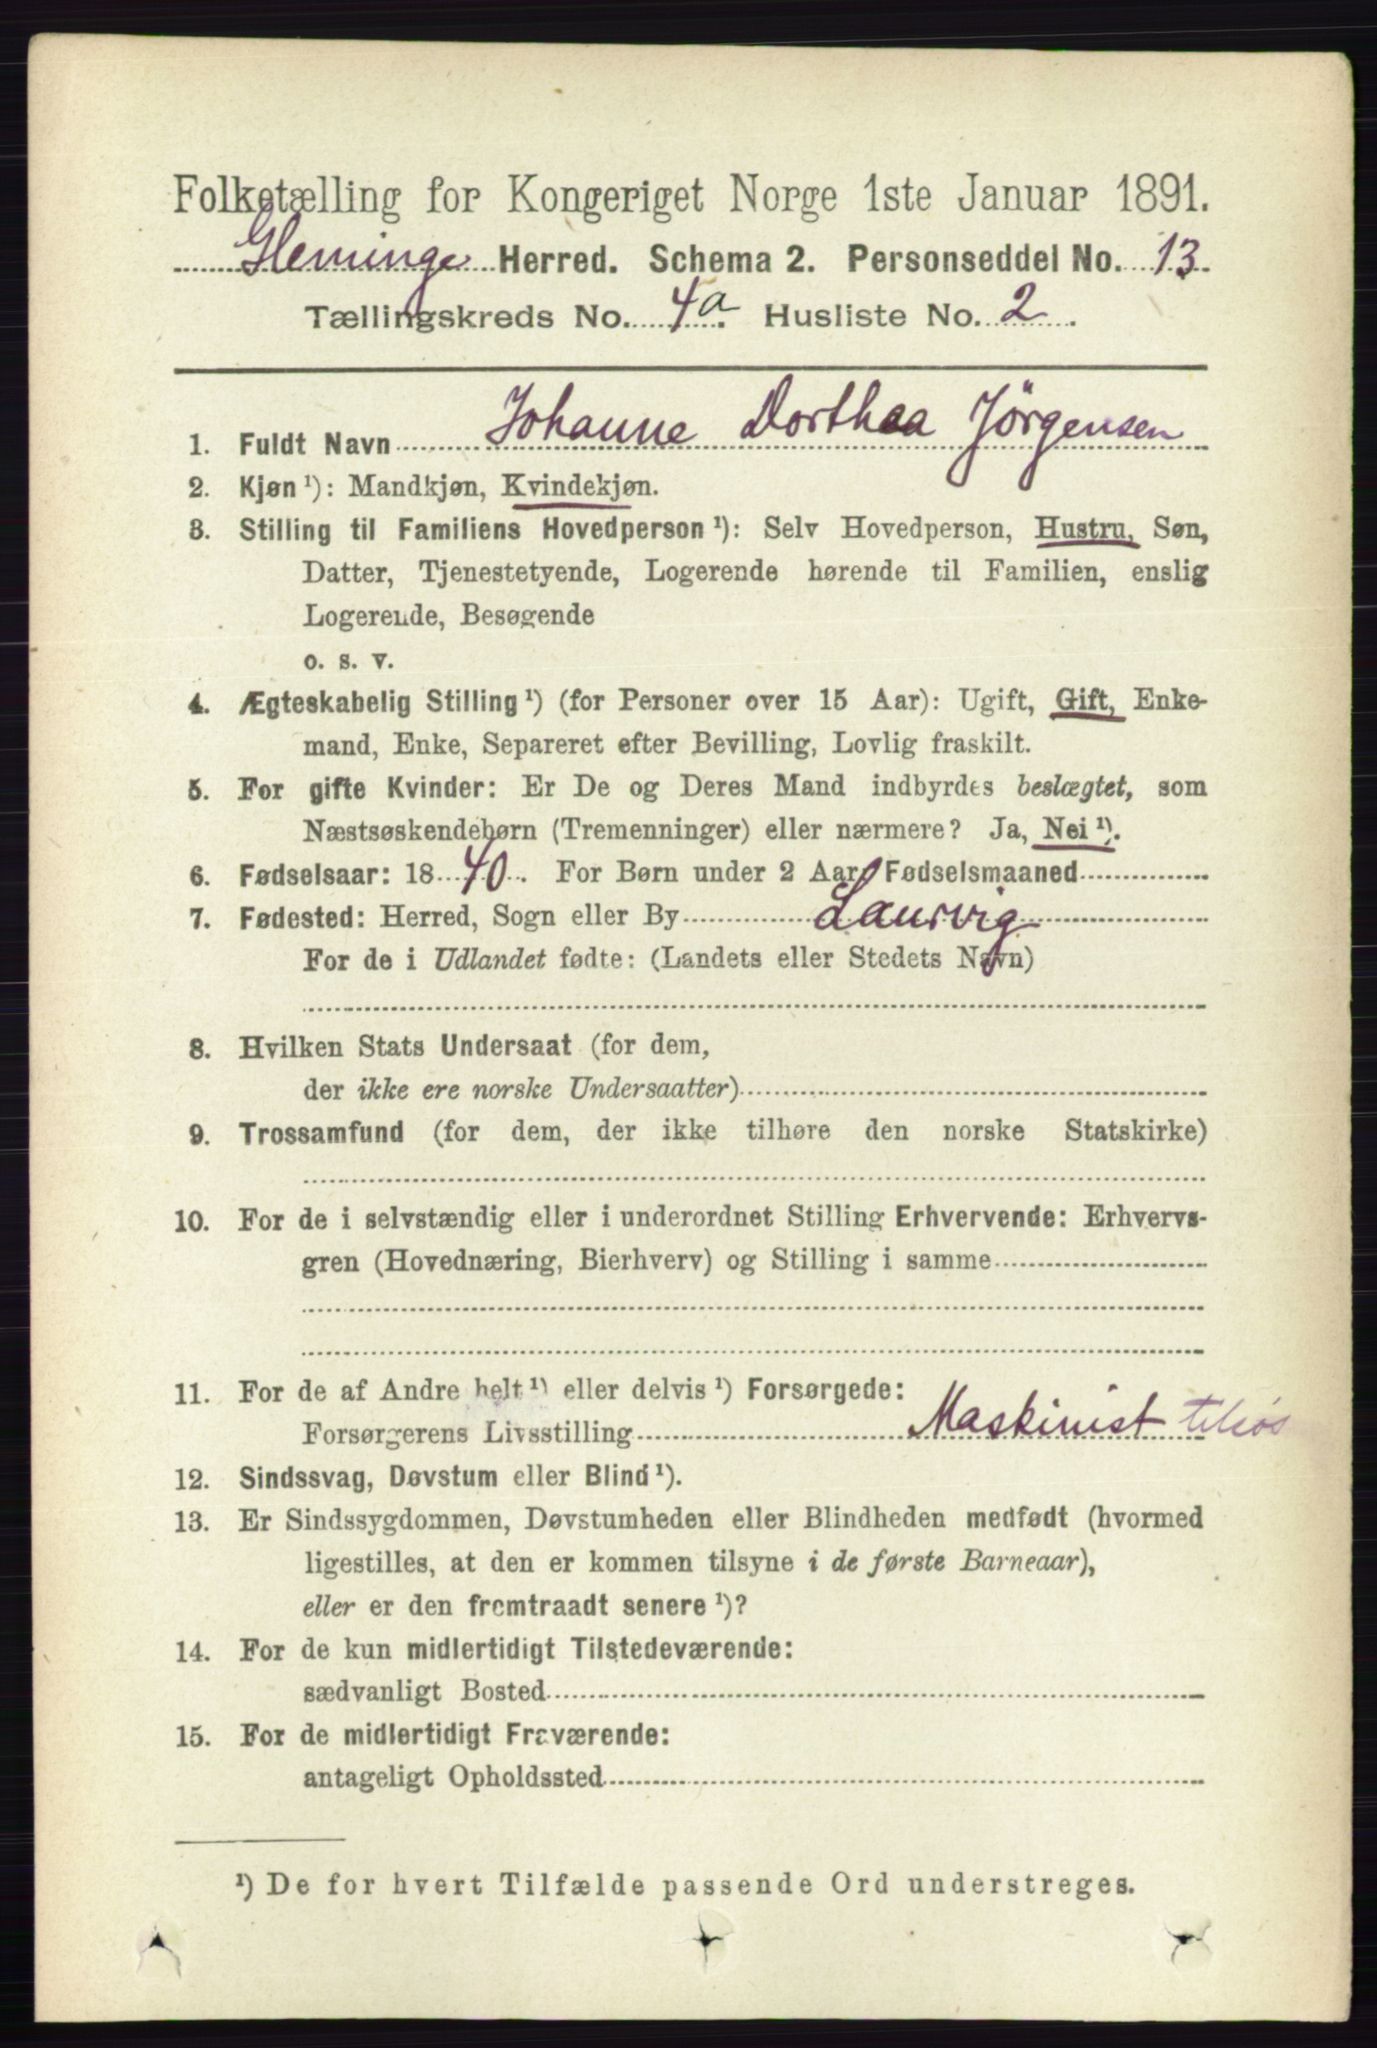 Folketælling for Kongeriget Norge 1ste Januar 1891.
Gleminge Herred. Schema 2. Personseddel No. 13
Tællingskreds No. 4a. Husliste No. 2.
1. Fuldt Navn Johanne Dorthea Jörgensen
2. Kjøn ¹): Mandkjøn, Kvindekjøn.
3. Stilling til Familiens Hovedperson ¹): Selv Hovedperson, Hustru, Søn,
Datter, Tjenestetyende, Logerende hørende til Familien, enslig
Logerende, Besøgende
o. s. v.
4. Ægteskabelig Stilling ¹) (for Personer over 15 Aar): Ugift, Gift, Enke-
mand, Enke, Separeret efter Bevilling, Lovlig fraskilt.
5. For gifte Kvinder: Er De og Deres Mand indbyrdes beslægtet, som
Næstsøskendebørn (Tremenninger) eller nærmere? Ja, Nei ¹).
6. Fødselsaar: 1840. For Børn under 2 Aar, Fødselsmaaned
7. Fødested: Herred, Sogn eller By Laurvig
For de i Udlandet fødte: (Landets eller Stedets Navn)
8. Hvilken Stats Undersaat (for dem,
der ikke ere norske Undersaatter)
9. Trossamfund (for dem, der ikke tilhøre den norske Statskirke)
10. For de i selvstændig eller i underordnet Stilling Erhvervende: Erhvervs-
gren (Hovednæring, Bierhverv) og Stilling i samme
11. For de af Andre helt ¹) eller delvis ¹) Forsørgede:
Forsørgerens Livsstilling Maskinist tilsøs
12. Sindssvag, Døvstum eller Blind ¹).
13. Er Sindssygdommen, Døvstumheden eller Blindheden medfødt (hvormed
ligestilles, at den er kommen tilsyne i de første Barneaar),
eller er den fremtraadt senere ¹)?
14. For de kun midlertidigt Tilstedeværende:
sædvanligt Bosted
15. For de midlertidigt Fraværende:
antageligt Opholdssted
¹) De for hvert Tilfælde passende Ord understreges.